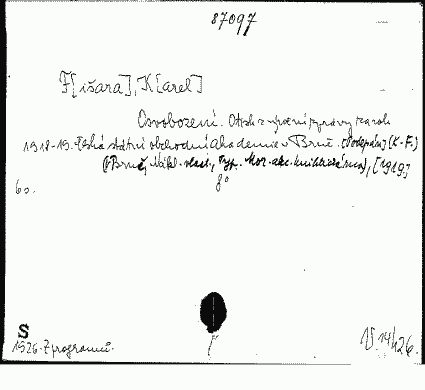 87097
F[išara], K[arel]
Osvobození. Otisk z výroční zprávy za rok
1918-19. Česká státní obchodní akademie v Brně. (Podepsán) (K. F.)
(V Brně, Nákl. vlast., Typ. Mor. akc. knihtiskárna), [1919]
6 s.
8°
S
1926. Z programů.
14/426.